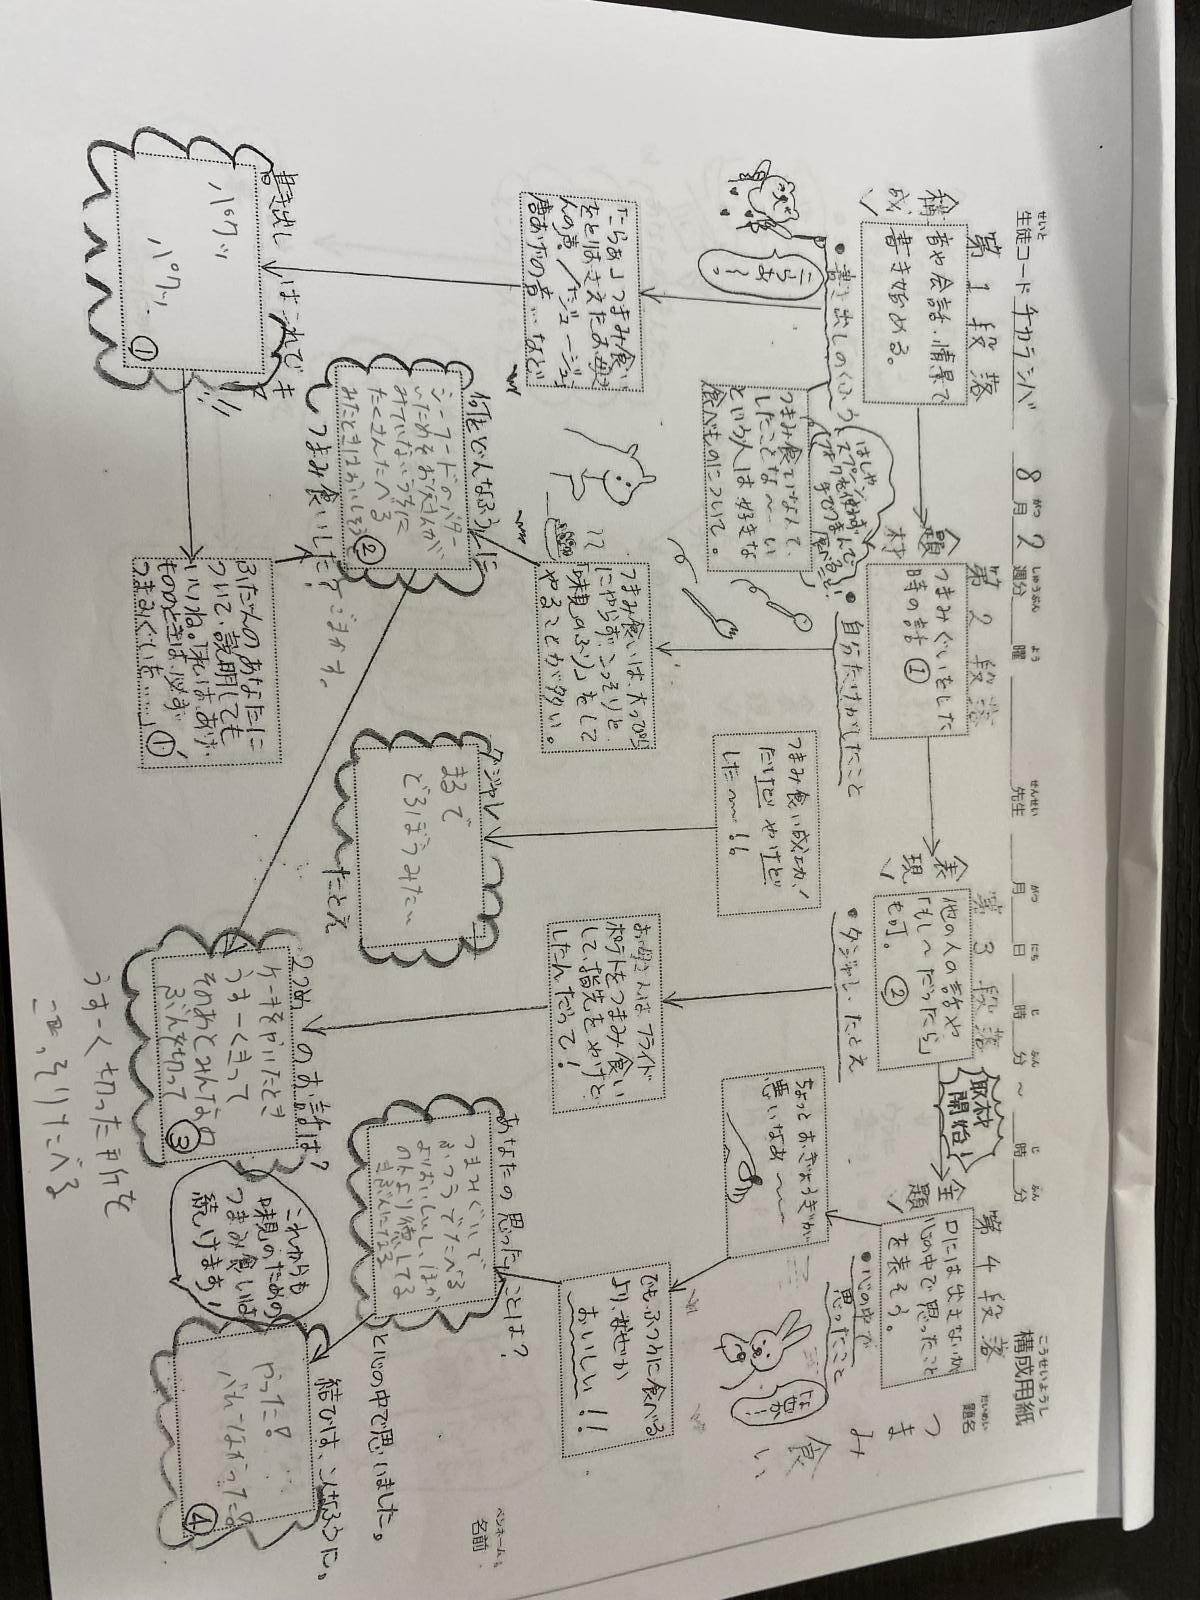 構成用紙
こうせいようし
題名
だいめい
つまみ食い
ペンネーム
名前
生徒コード チカラシバ
せいと
8月2週分
がつ
しゅうぶん
曜
よう
先生
せんせい
月 日 時 分 ～ 時 分
がつ にち じ ふん じ ふん
第1段落
構成
音や会話・情景で
書き始める。
・書き出しのくふう
うまあ〜!
「たらぁ」つまみ食い
をとりおさえたお母さ
んの声／「ジュージュー」
唐あげの音…など
つまみ食いなんて、
したことな〜い
という人は好きな
食べものについて。
はしや
スプーン、
フォークを使わず
手でつまんで
食べること
書き出しはこれでキマリ!!
パクッ
パクッ
①
第2段落
題材
つまみぐいをした
時の話①
・自分だけがしたこと
つまみ食いは、大っぴら
にやらず、こっそりと、
「味見のふり」をして
やることが多い。
何をどんなふうに
つまみ食いした?
シーフードのバター
いためをお父さんが
みていないうちに
たくさんたべる
②
ごまかす。
ふだんのあなたに
ついて、説明しても
いいね。「私は、あげ
もののときは、必ず
つまみぐいを……」①
第3段落
表現
他の人の話や
「もし〜だったら」
も可。②
取材
開始!
・ダジャレ・たとえ
つまみ食い成功!
だけど やけど
した〜!!
ダジャレ・たとえ
まるで
どろぼうみたい
お母さんはフライド
ポテトをつまみ食い
して、指先をやけど
したんだって!
2つめのお話は?
ケーキをやいたとき
うすーくきって
そのあとみんなの
ぶんを切って
③
うすーく切った所を
こっそりたべる
第4段落
主題
口には出さないが
心の中で思ったこと
を表そう。
・心の中で
思ったこと
ちょっとおぎょうぎが
悪いなあ〜
でも、ふつうに食べる
より、なぜか
おいしい!!
なぜか…
あなたの思ったことは?
つまみぐいで
ふつうでたべる
よりおいしいし、ほか
の人より得してる
きぶんになる
と心の中で思いました。
結びは、こんなふうに。
これからも
味見のための
つまみ食いは
続けます!
やった!!
バレなかった!!
④